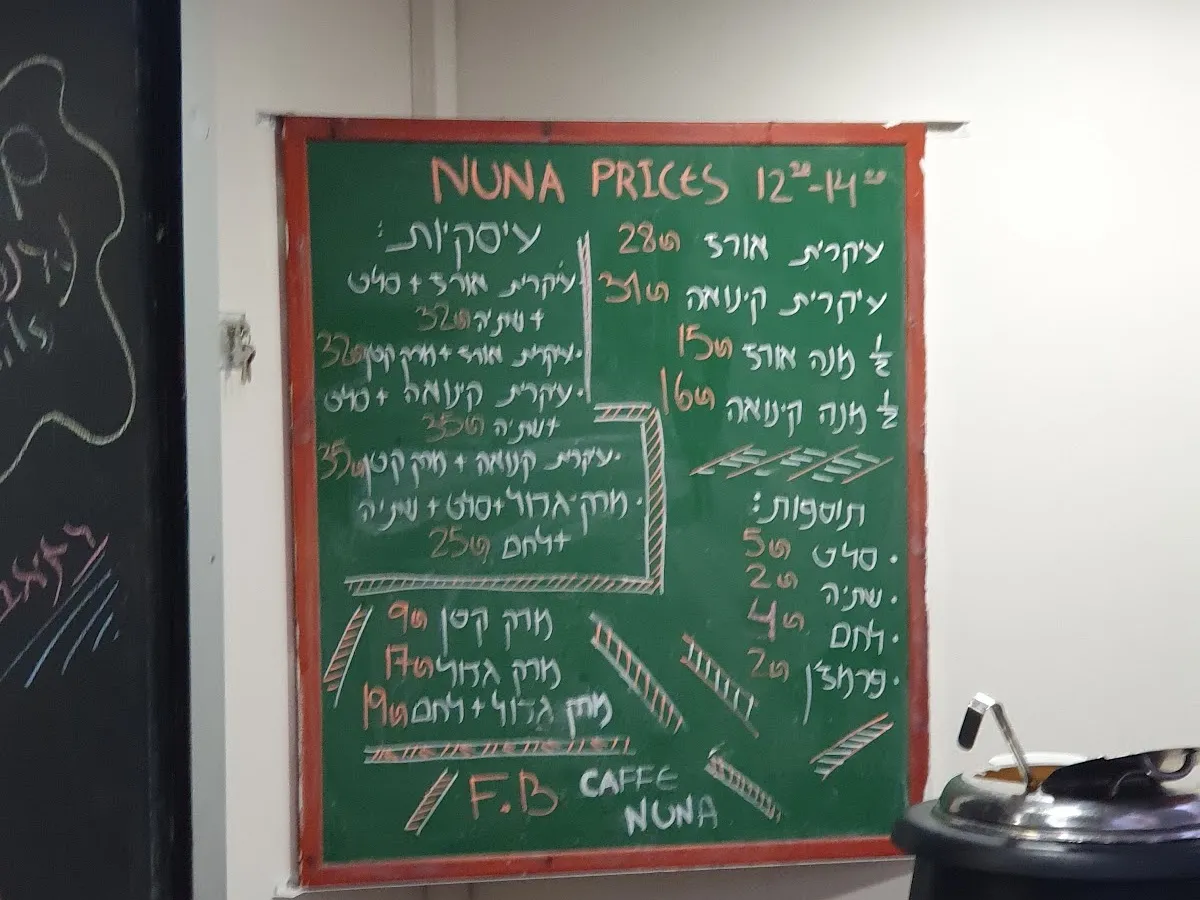 NUNA PRICES 12⁰⁰-14⁰⁰
עיקרית אורז 28₪
עיקרית קינואה 31₪
½ מנה אורז 15₪
½ מנה קינואה 16₪
תוספות:
• סלט 5₪
• שתיה 2₪
• לחם 4₪
• פרמז'ן 2₪
עיסקיות:
• עיקרית אורז + סלט
+ שתיה 32₪
• עיקרית אורז + מרק קטן 32₪
• עיקרית קינואה + סלט
+ שתיה 35₪
• עיקרית קנואה + מרק קטן 35₪
• מרק גדול + סלט + שתיה
+ לחם 25₪
מרק קטן 9₪
מרק גדול 17₪
מרק גדול + לחם 19₪
F.B CAFFE
NUNA